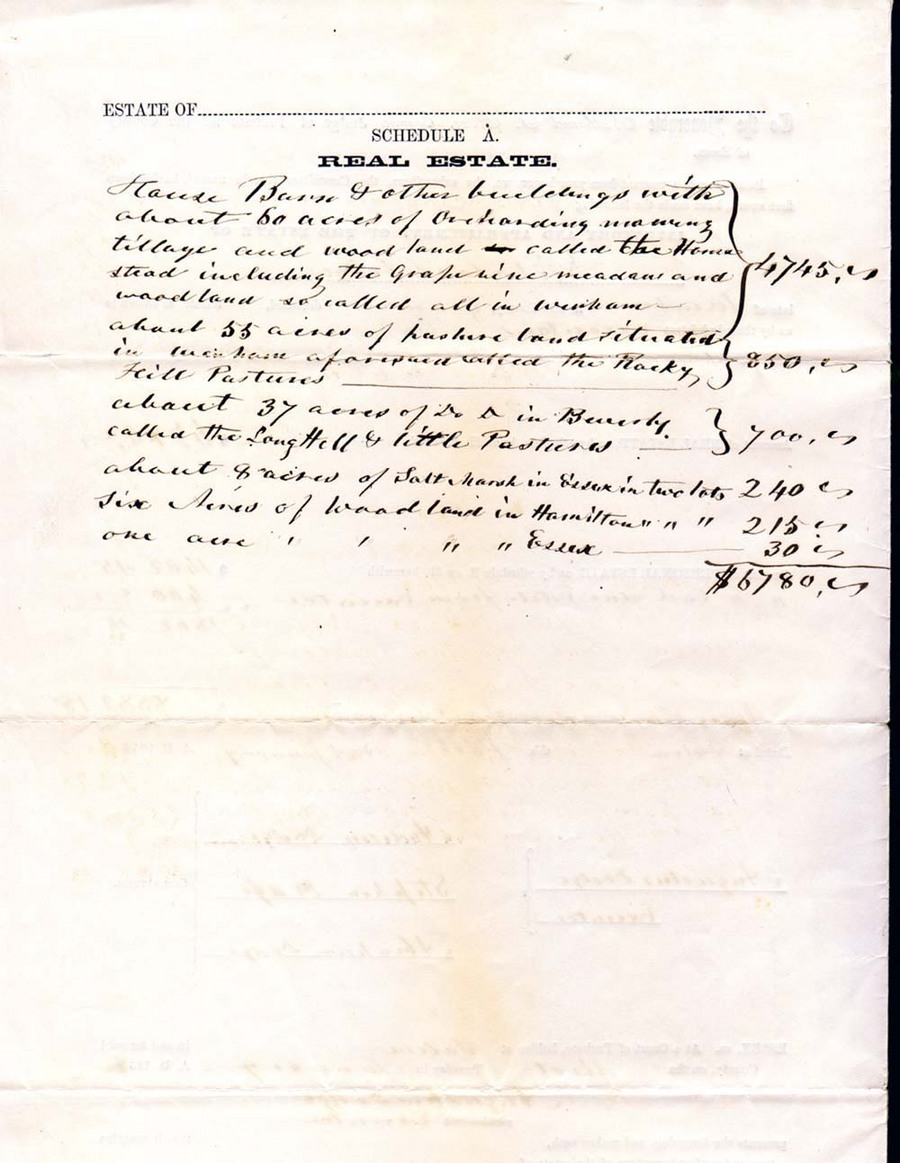 ESTATE OF
SCHEDULE A.
REAL ESTATE.
House Barn & other buildings with
about 60 acres of Orcharding mowing
tillage and wood land called the Home
stead including the Grape vine meadow and
woodland so called all in Wenham 4745,
about 55 acres of pasture land situated
in Wenham aforesaid called the Rocky
Hill Pastures 850,
about 37 acres of Do Do in Beverly
called the Long Hill & little Pastures 700,
about 8 acres of Salt Marsh in Essex in two lots 240
Six Acres of Wood land in Hamilton " " " 215
one acre ' ' " " Essex 30
$6780,